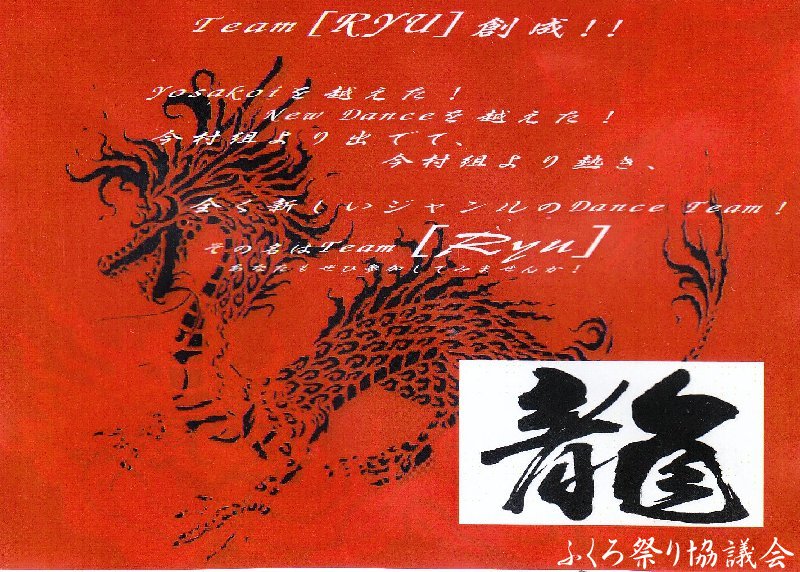 Team [RYU] 創成!!
Yosakoiを越えた!
New Danceを越えた!
今村組より出でて、
今村組より熱き、
全く新しいジャンルのDance Team!
その名はTeam [Ryu]
あなたもぜひ参加してみませんか!
龍
ふくろ祭り協議会